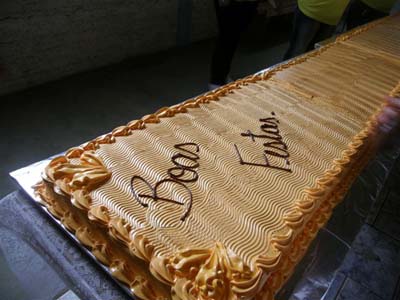 Boas
Festas.